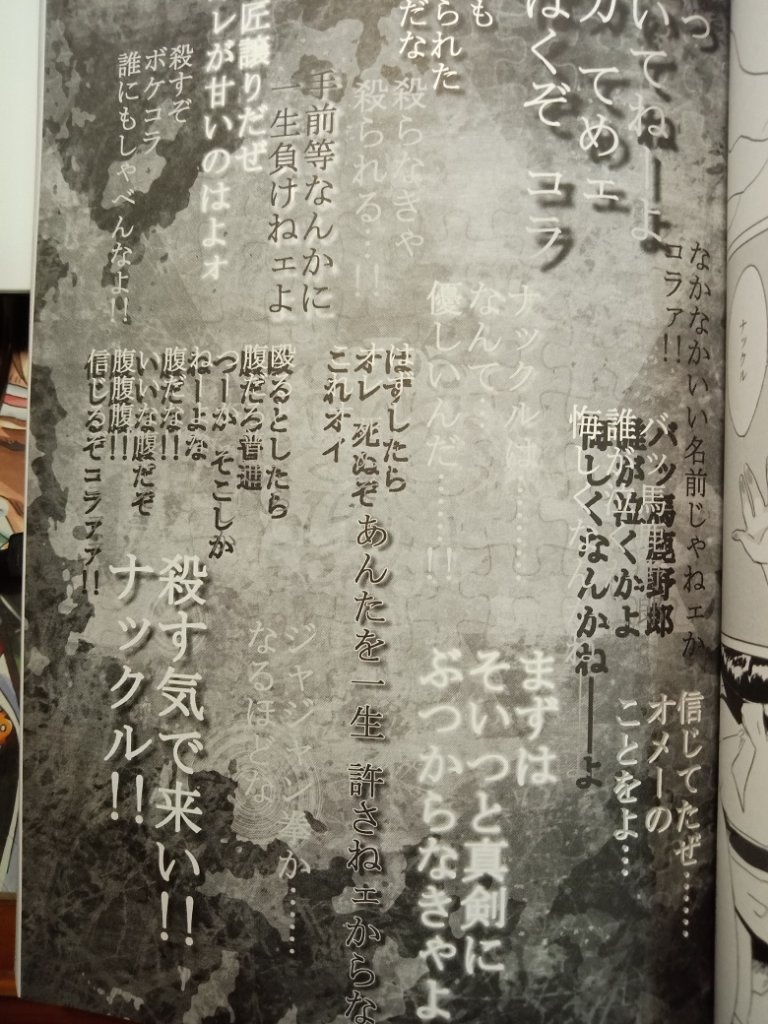 っ
いてねーよ
カ てめェ
はくぞ コラ
も
られた
だな
殺らなきゃ
殺られる…!!
手前等なんかに
一生負けねェよ
匠譲りだぜ
レが甘いのはよォ
殺すぞ
ボケコラ
誰にもしゃべんなよ!!
なかなかいい名前じゃねェか
コラァ!!
ナックル
バッ馬鹿野郎
誰が泣くかよ
悔しくなんかねーーよ
ナックルは……
なんて…
優しいんだ……!!
はずしたら
オレ 死ぬぞ
これオイ
殴るとしたら
腹だろ普通
つーか そこしか
ねーよな
腹だな!!
いいな腹だぞ
腹腹腹!!
信じるぞコラァァ!!
信じてたぜ……
オメーの
ことをよ…
まずは
そいつと真剣に
ぶつからなきゃよ
あんたを一生 許さねェからな
ジャジャン拳か……
なるほどな
殺す気で来い!!
ナックル!!